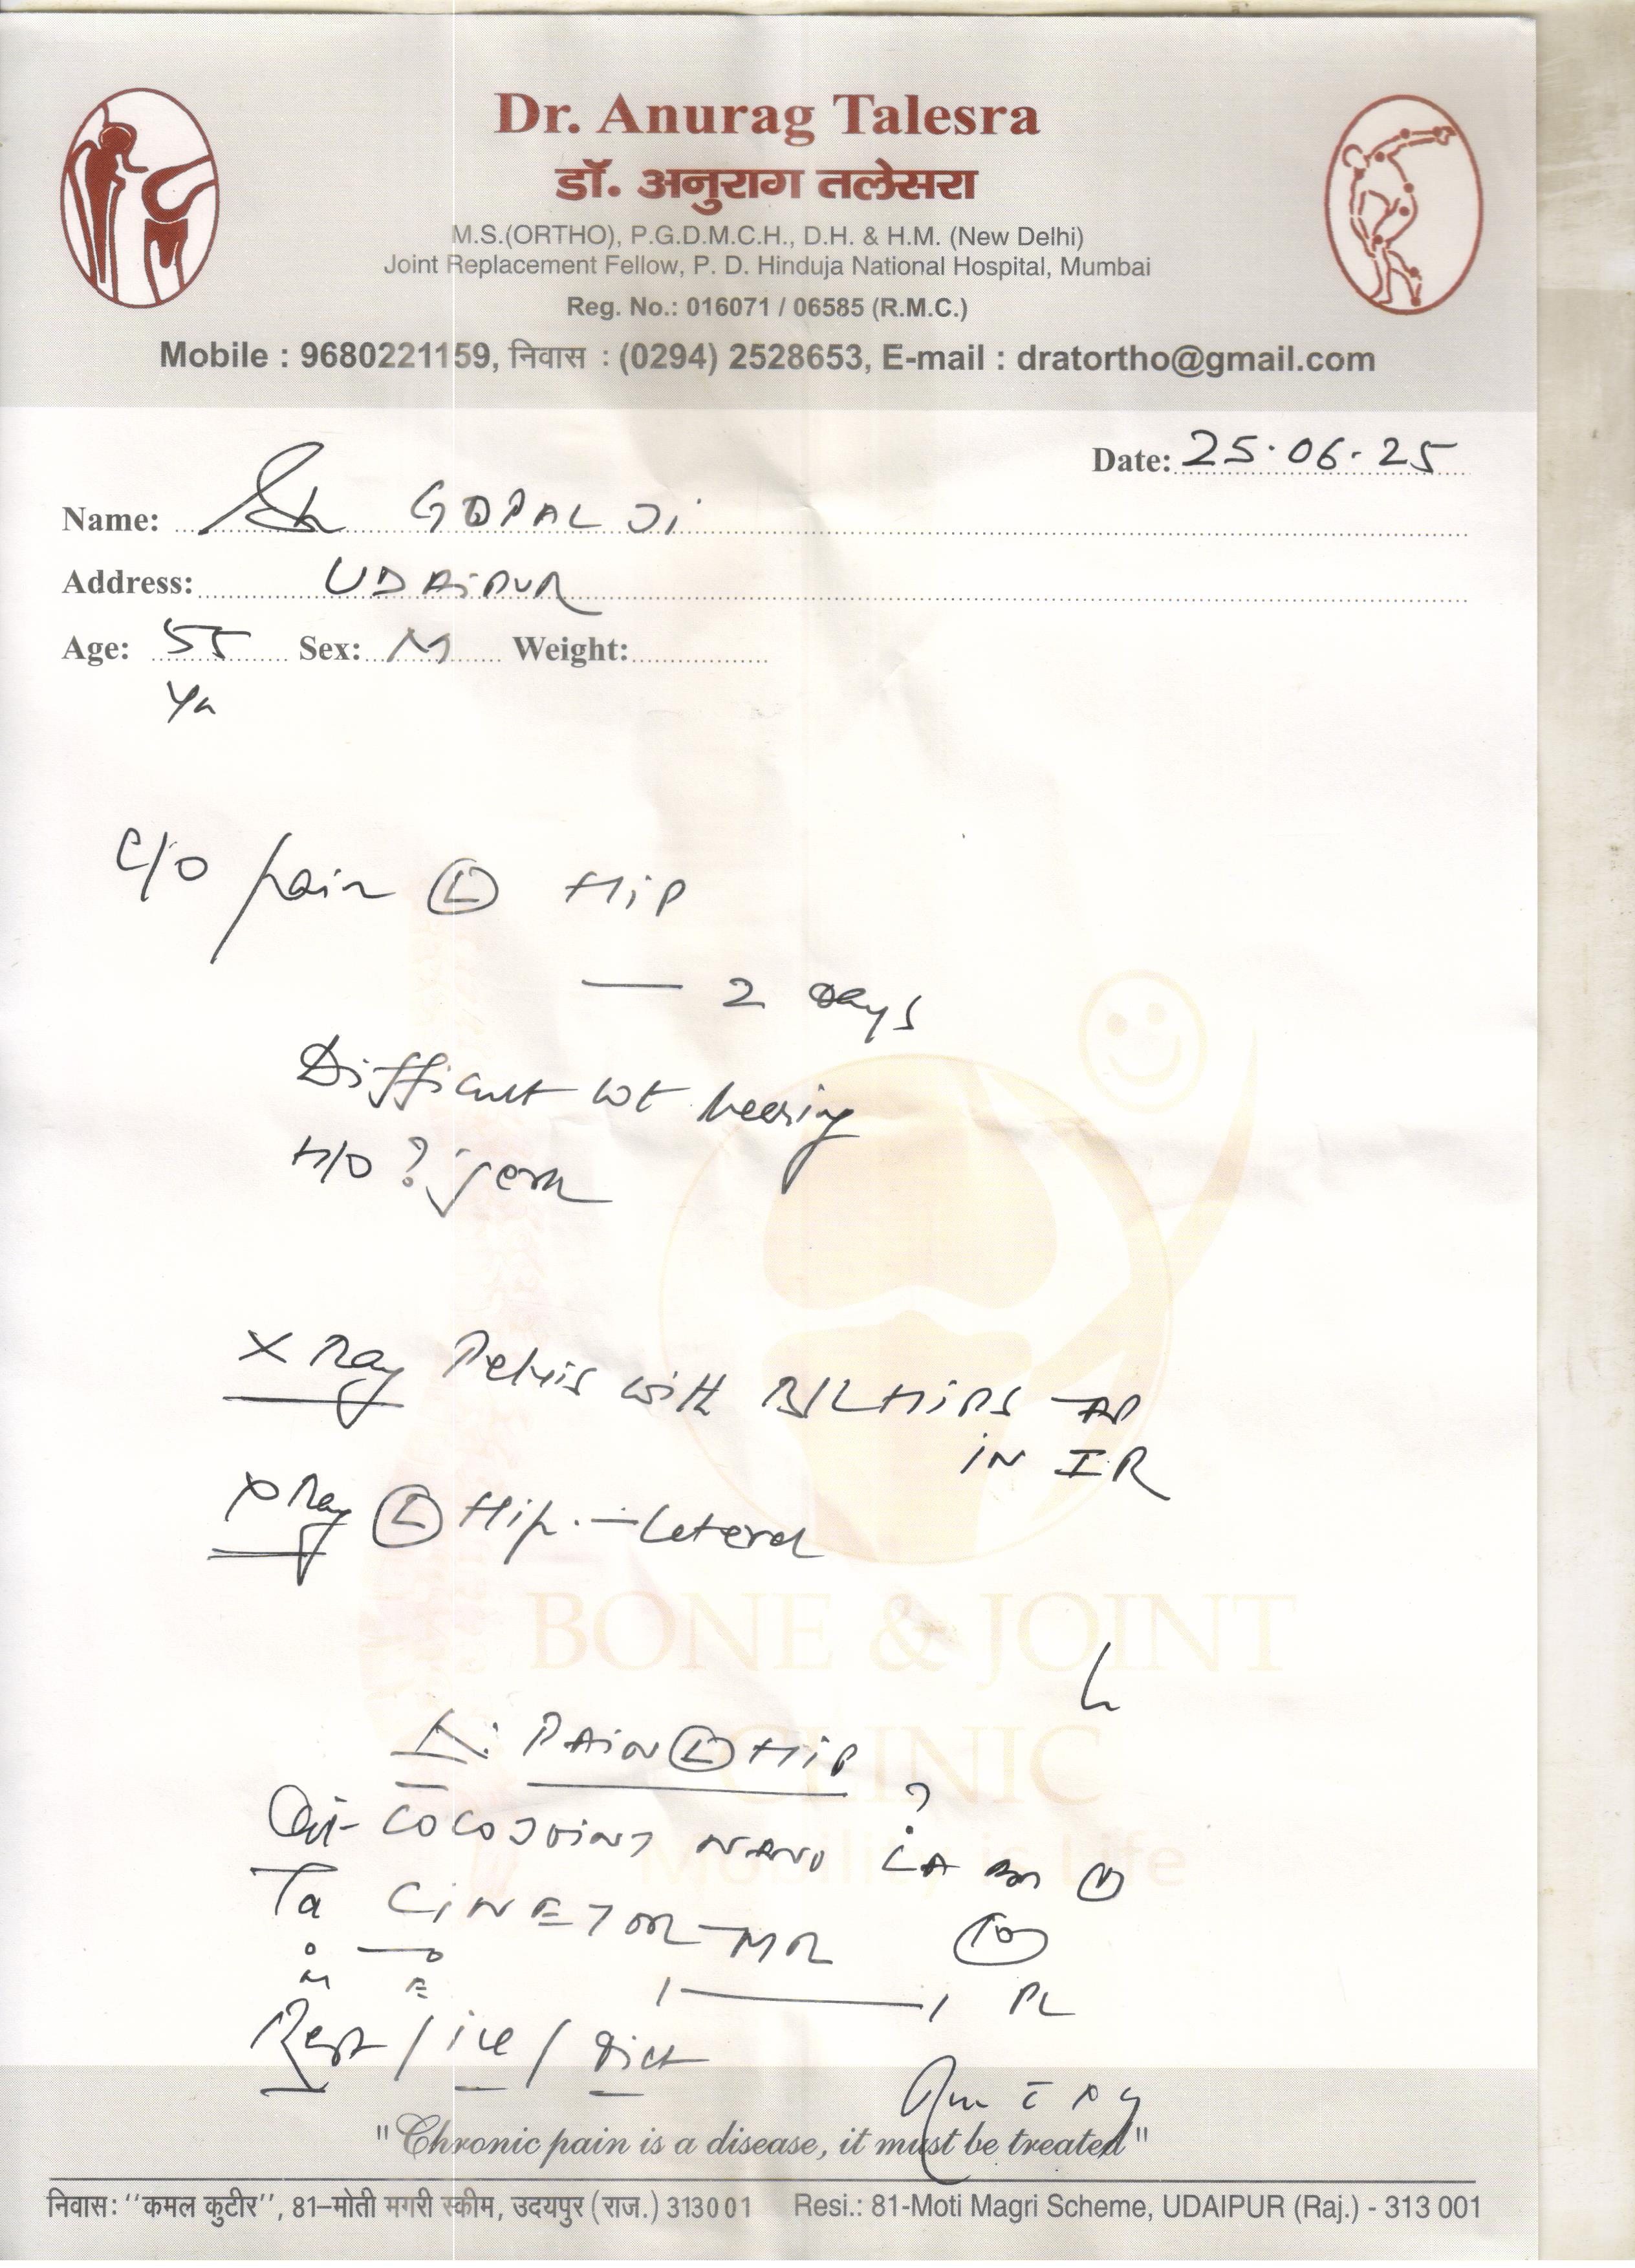 Dr. Anurag Talesra
डॉ. अनुराग तलेसरा
M.S.(ORTHO), P.G.D.M.C.H., D.H. & H.M. (New Delhi)
Joint Replacement Fellow, P. D. Hinduja National Hospital, Mumbai
Reg. No.: 016071 / 06585 (R.M.C.)
Mobile : 9680221159, निवास : (0294) 2528653, E-mail : dratortho@gmail.com
Date: 25.06.25
Name: Sh GOPAL Ji
Address: UDAiPUR
Age: 55 Sex: M Weight:
Yr
C/O pain L HiP
— 2 days
Difficult wt bearing
H/O ? jerk
X Ray Pelvis with B/L HiPS AP
IN IR
X Ray L Hip. — lateral
BONE & JOINT
CLINIC
PAiN L HiP
COCOJOiNT NANO
Ta CiNETOR-MR 10
M E
Rest / ice / Diet
"Chronic pain is a disease, it must be treated"
निवास: ''कमल कुटीर'', 81–मोती मगरी स्कीम, उदयपुर (राज.) 313001 Resi.: 81-Moti Magri Scheme, UDAIPUR (Raj.) - 313 001